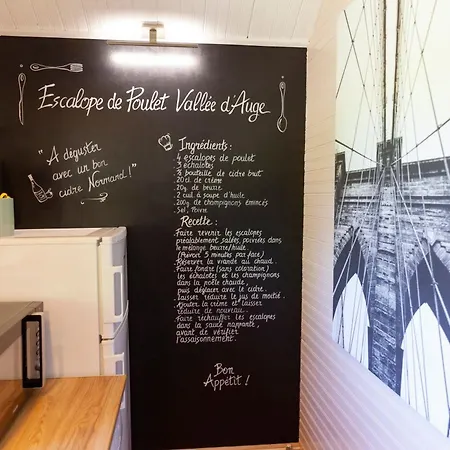 Escalope de Poulet Vallée d'Auge
"A déguster
avec un bon
cidre Normand!"
Ingrédients :
4 escalopes de poulet
3 échalotes
½ bouteille de cidre brut
20cl de crème
20g de beurre
2 cuil à soupe d'huile
200g de champignons émincés
Sel, Poivre
Recette :
Faire revenir les escalopes
préalablement salées, poivrées dans
le mélange beurre/huile.
(Prévoir 5 minutes par face)
Réserver la viande au chaud.
Faire fondre (sans coloration)
les échalotes et les champignons
dans la poêle chaude,
puis déglacer avec le cidre.
Laisser réduire le jus de moitié.
Ajouter la crème et laisser
réduire de nouveau.
Faire réchauffer les escalopes
dans la sauce nappante,
avant de vérifier
l'assaisonnement.
Bon
Appétit !